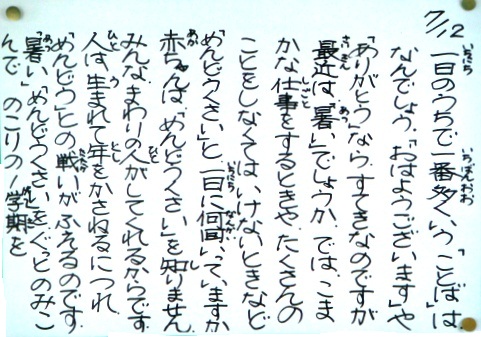 7/12
一日のうちで一番多くいう「ことば」は
なんでしょう。「おはようございます」や
「ありがとう」なら、すてきなのですが
最近は、「暑い」でしょうか。では、こま
かな仕事をするときや、たくさんの
ことをしなくてはいけないときなど
「めんどうくさい」と一日に何回いっていますか
赤ちゃんは「めんどうくさい」を知りません
みんな、まわりの人がしてくれるからです
人は、生まれて年をかさねるにつれ、
「めんどう」との戦いがふえるのです。
「暑い」「めんどうくさい」をぐっとのみこ
んで のこりの1学期を